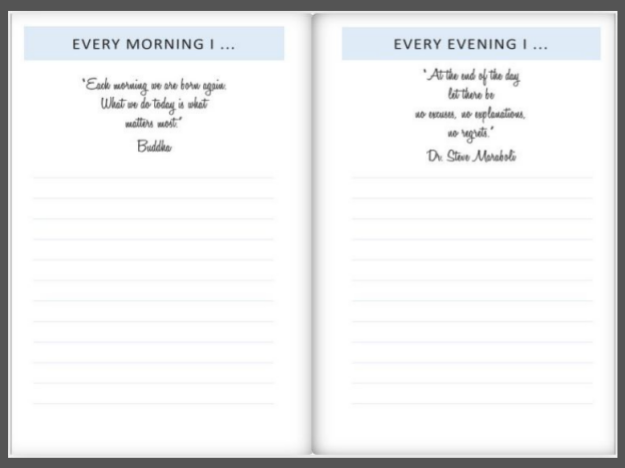 EVERY MORNING I ...
"Each morning we are born again.
What we do today is what
matters most."
Buddha
EVERY EVENING I ...
"At the end of the day
let there be
no excuses, no explanations,
no regrets."
Dr. Steve Maraboli